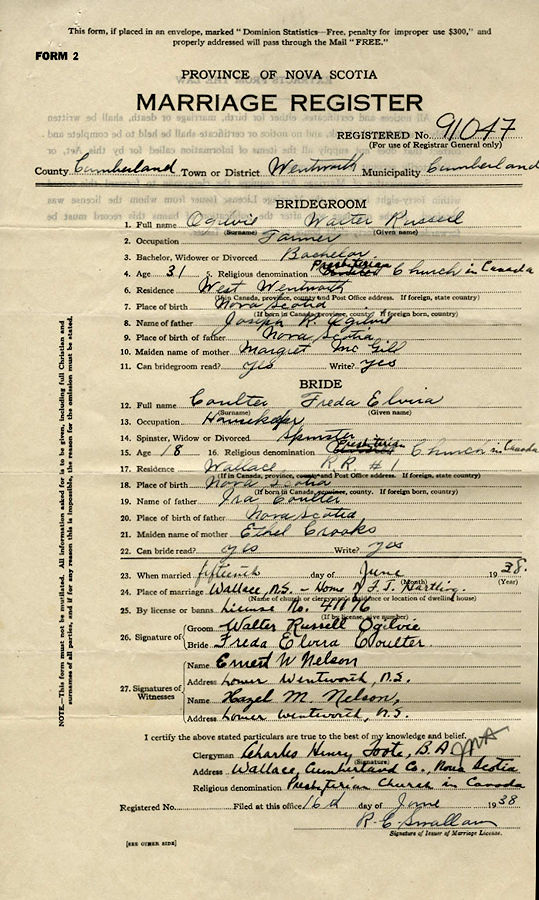 This form, if placed in an envelope, marked "Dominion Statistics—Free, penalty for improper use $300," and
properly addressed will pass through the Mail "FREE."
FORM 2
PROVINCE OF NOVA SCOTIA
MARRIAGE REGISTER
REGISTERED No. 91047
(For use of Registrar General only)
County Cumberland Town or District Wentworth Municipality Cumberland
BRIDEGROOM
1. Full name Ogilvie Walter Russell
(Surname) (Given name)
2. Occupation Farmer
3. Bachelor, Widower or Divorced Bachelor
4. Age 31 5. Religious denomination Presbyterian Church in Canada
6. Residence West Wentworth
(If in Canada, province, county and Post Office address. If foreign, state country)
7. Place of birth Nova Scotia
(If born in Canada, province, county. If foreign born, country)
8. Name of father Joseph R. Ogilvie
9. Place of birth of father Nova Scotia
10. Maiden name of mother Margret McGill
11. Can bridegroom read? yes Write? yes
BRIDE
12. Full name Coulter Freda Elvira
(Surname) (Given name)
13. Occupation Housekeeper
14. Spinster, Widow or Divorced Spinster
15. Age 18 16. Religious denomination Presbyterian Church in Canada
17. Residence Wallace, R.R. #1
(If in Canada, province, county and Post Office address. If foreign, state country)
18. Place of birth Nova Scotia
(If born in Canada, province, county. If foreign born, country)
19. Name of father Ira Coulter
20. Place of birth of father Nova Scotia
21. Maiden name of mother Ethel Crooks
22. Can bride read? yes Write? yes
23. When married fifteenth day of June 1938.
(Month) (Year)
24. Place of marriage Wallace, N.S. - Home of F. J. Hartling.
(Name of church or clergyman's residence or location of dwelling house)
25. By license or banns License No. 41176
(If by license, give number)
26. Signature of Groom Walter Russell Ogilvie
Bride Freda Elvira Coulter.
27. Signatures of Witnesses Name Ernest W Nelson
Address Lower Wentworth, N.S.
Name Hazel M. Nelson,
Address Lower Wentworth, N.S.
I certify the above stated particulars are true to the best of my knowledge and belief.
Clergyman Charles Henry Foote, B.A
(Signature)
Address Wallace, Cumberland Co., Nova Scotia
Religious denomination Presbyterian Church in Canada
Registered No. Filed at this office 16th day of June 1938
R. E. Smallam
Signature of Issuer of Marriage License.
[SEE OTHER SIDE]
NOTE.—This form must not be mutilated. All information asked for is to be given, including full Christian and
surnames of all parties, and if for any reason this is impossible, the reason for the omission must be stated.